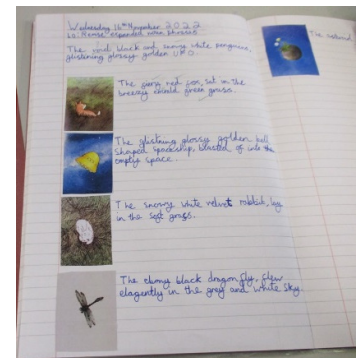 Wednesday 16th November 2022
LO: Nouns expanded noun phrases
The black and snowy white penguins,
glistening glossy golden UFO.
The red fox, sat on the
breezy green grass.
The glistning glossy golden ball
shaped spaceship, blasted of into the
empty space.
The snowy white velvet rabbit, lay
in the soft grass.
The ebony black dragon fly, flew
elagently in the grey and white sky.
The